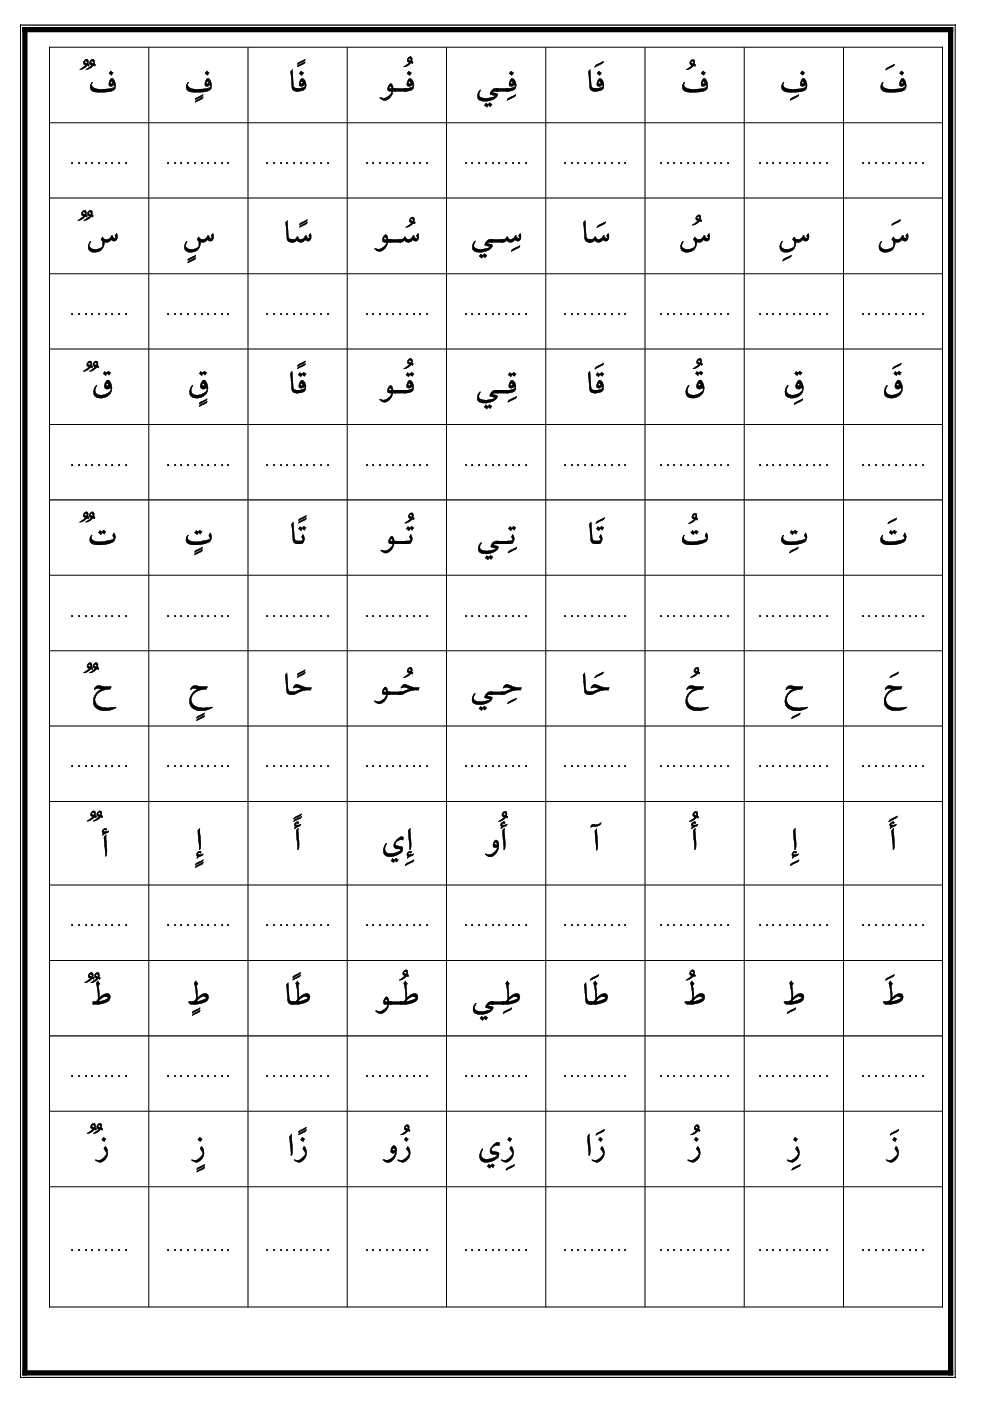 فَ فِ فُ فَا فِـي فُـو فًا فٍ فٌ
........... ........... ........... .......... .......... .......... .......... .......... .........
سَ سِ سُ سَا سِـي سُـو سًا سٍ سٌ
........... ........... ........... .......... .......... .......... .......... .......... .........
قَ قِ قُ قَا قِـي قُـو قًا قٍ قٌ
........... ........... ........... .......... .......... .......... .......... .......... .........
تَ تِ تُ تَا تِـي تُـو تًا تٍ تٌ
........... ........... ........... .......... .......... .......... .......... .......... .........
حَ حِ حُ حَا حِـي حُـو حًا حٍ حٌ
........... ........... ........... .......... .......... .......... .......... .......... .........
أَ إِ أُ آ أُو إِي أً إٍ أٌ
........... ........... ........... .......... .......... .......... .......... .......... .........
طَ طِ طُ طَا طِـي طُـو طًا طٍ طٌ
........... ........... ........... .......... .......... .......... .......... .......... .........
زَ زِ زُ زَا زِي زُو زًا زٍ زٌ
........... ........... ........... .......... .......... .......... .......... .......... .........